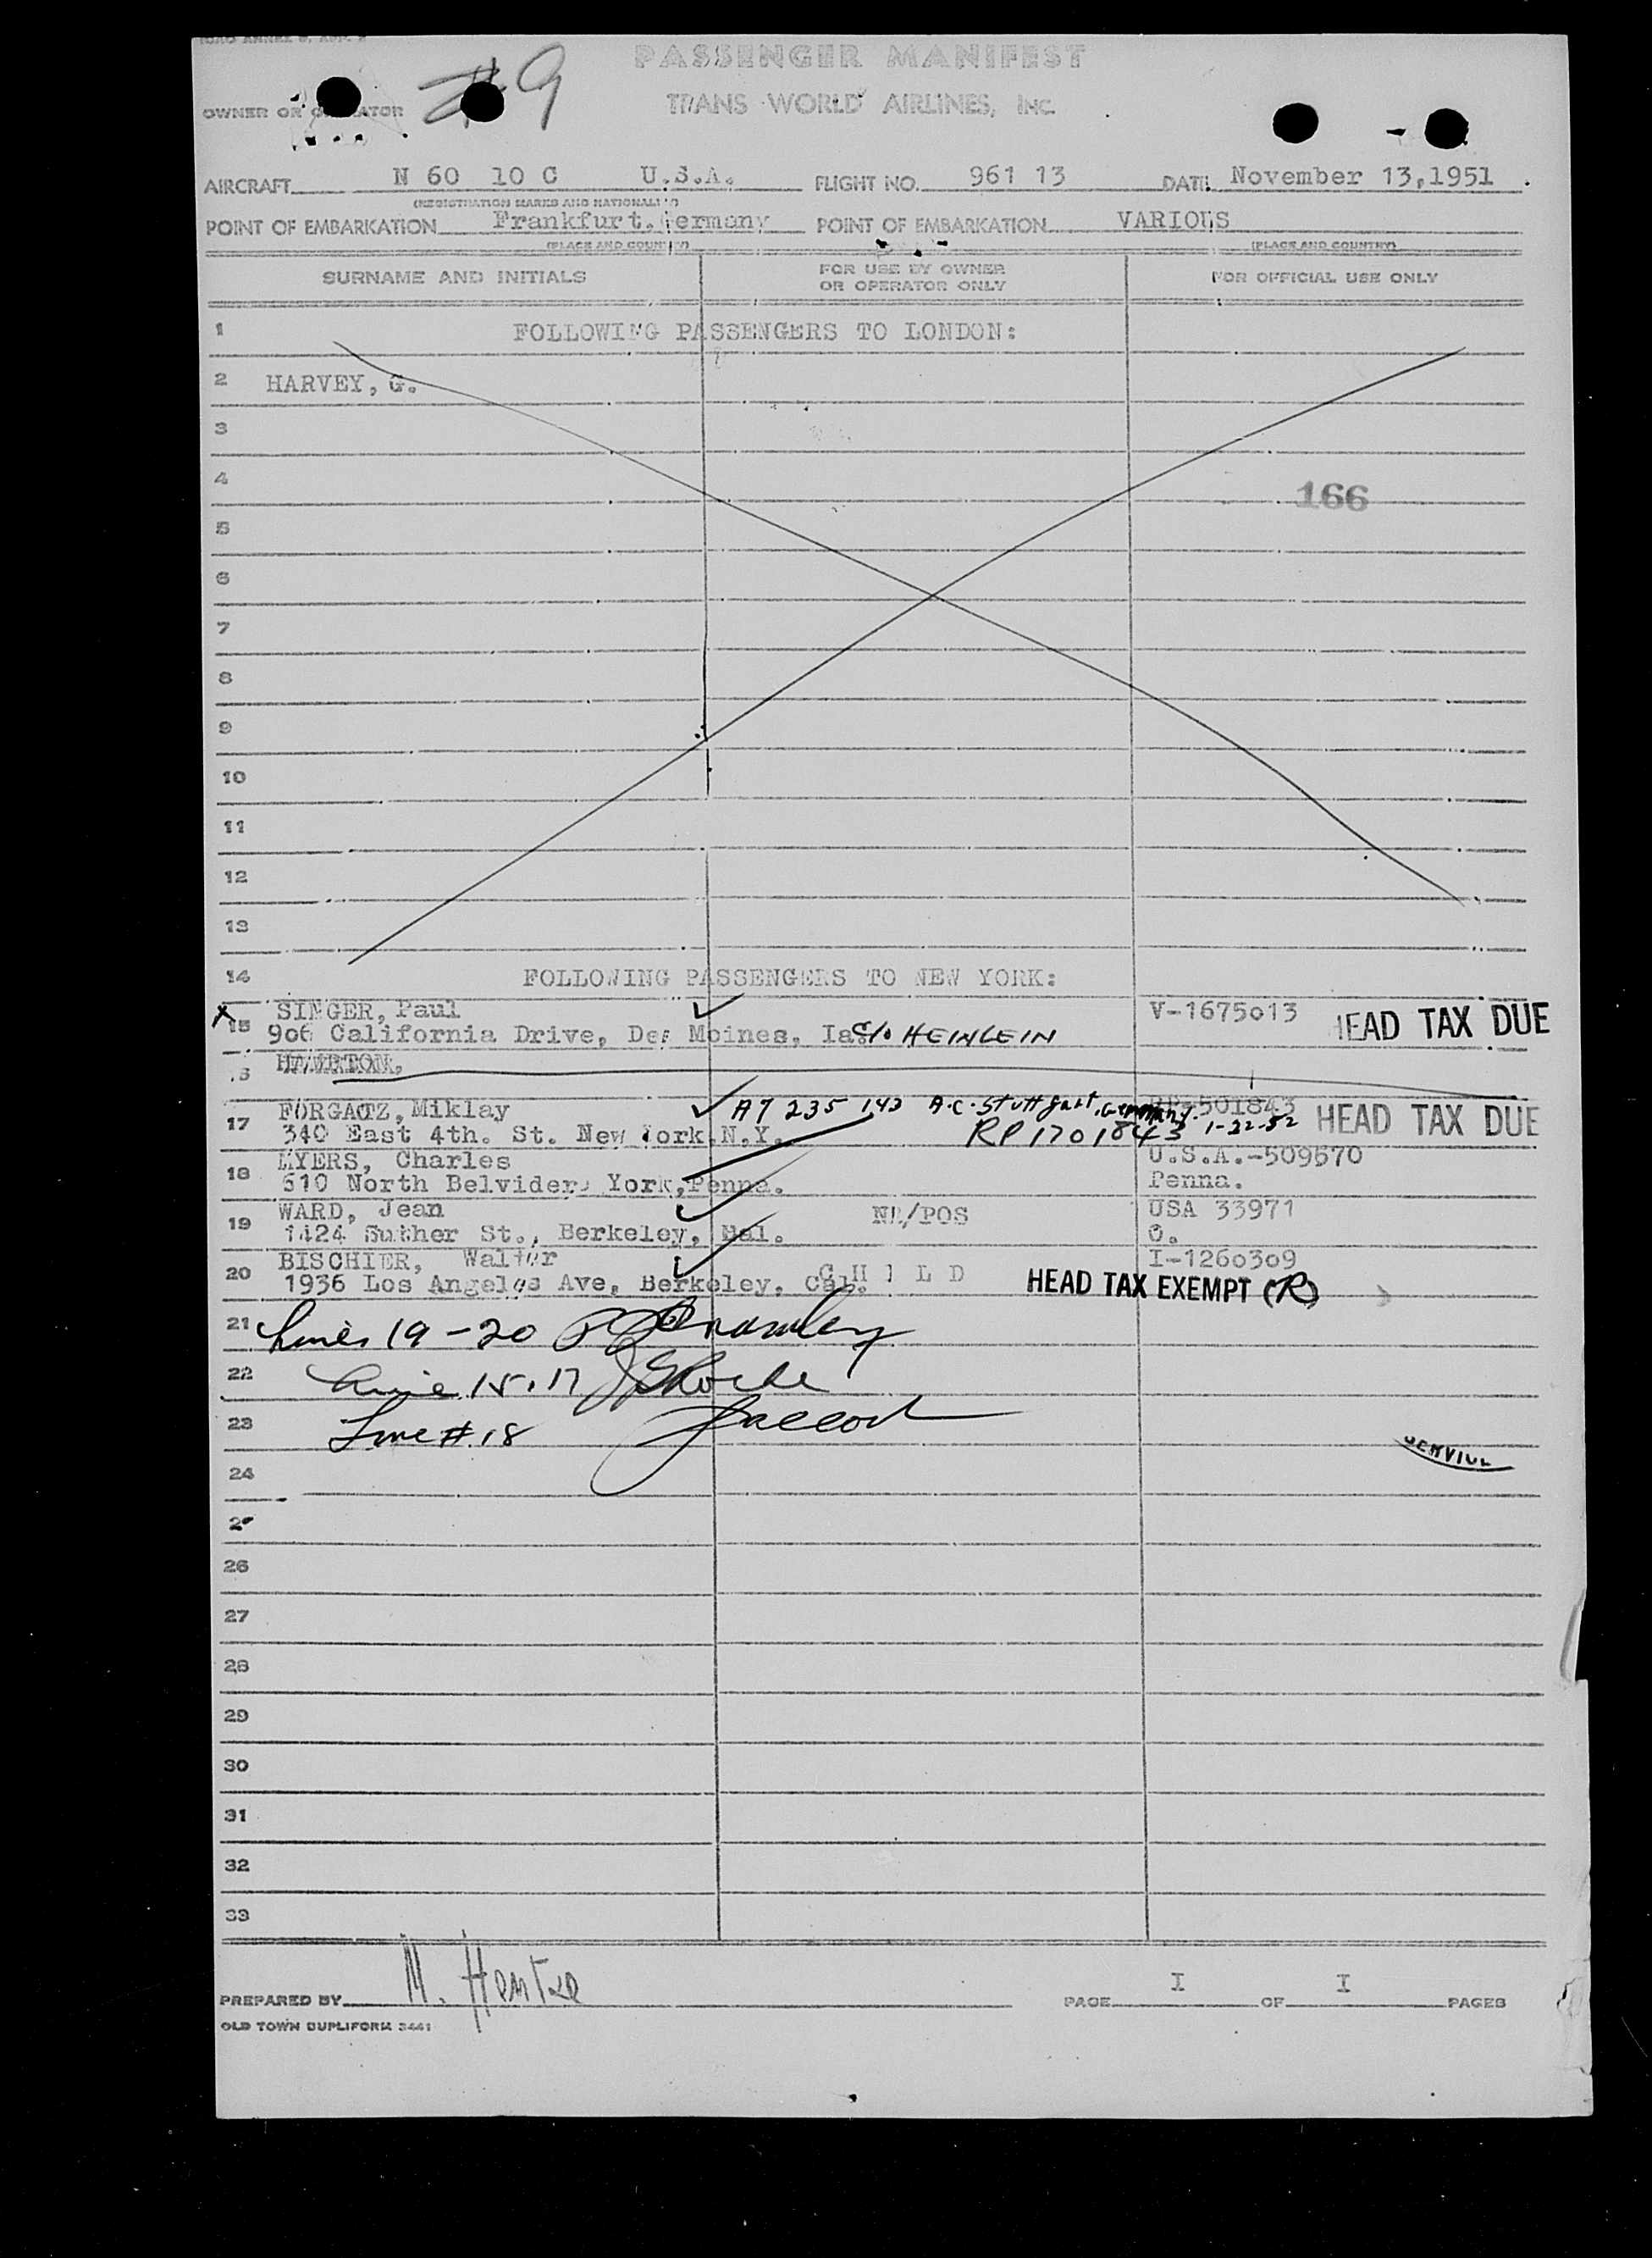 PASSENGER MANIFEST
#9
OWNER OR OPERATOR TRANS WORLD AIRLINES, INC.
AIRCRAFT N 60 10 C U.S.A. FLIGHT NO. 961 13 DATE November 13,1951
(REGISTRATION MARKS AND NATIONALITY)
POINT OF EMBARKATION Frankfurt.Germany POINT OF EMBARKATION VARIOUS
(PLACE AND COUNTRY) (PLACE AND COUNTRY)
SURNAME AND INITIALS FOR USE BY OWNER OR OPERATOR ONLY FOR OFFICIAL USE ONLY
1 FOLLOWING PASSENGERS TO LONDON:
2 HARVEY, G.
3
4 166
5
6
7
8
9
10
11
12
13
14 FOLLOWING PASSENGERS TO NEW YORK:
SINGER, Paul V-1675013
X 15 906 California Drive, Des Moines, Ia. c/o HEINLEIN HEAD TAX DUE
FORGACZ, Miklay A7 235 143 A.C. Stuttgart, Germany. RP-501843
17 340 East 4th. St. New York,N.Y. RP 1701843 1-22-52 HEAD TAX DUE
MYERS, Charles U.S.A.-509570
18 610 North Belvidere York,Penna. Penna.
WARD, Jean NR/POS USA 33971
19 1424 Suther St., Berkeley, Cal. O.
BISCHIER, Walter I-1260309
20 1936 Los Angeles Ave, Berkeley, Cal. CHILD HEAD TAX EXEMPT (R)
21 Lines 19-20
22 Line 15.17
23 Line # 18
24
26
27
28
29
30
31
32
33
PREPARED BY M. Hentze PAGE I OF I PAGES
OLD TOWN DUPLIFORM 3441